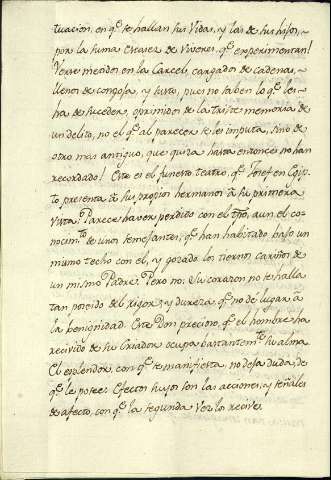 tuacion, en qe. se hallan sus Vidas, y las de sus hijos,
por la suma escasez de Viveres, qe. experimentan!
Verse metidos en la Carcel, cargados de cadenas,
llenos de congoja, y susto, pues no saben lo qe. les
ha de suceder, oprimidos de la triste memoria de
un delito, no el qe. al parecer se les imputa, sino de
otro mas antiguo, que quiza hasta entonces no han
recordado! Este es el funesto teatro, qe. Josef en Egip-
to presenta a sus propios hermanos a su primera
vista. Parece haver perdido con el tpo, aun el co-
nocimto. de unos semejantes, qe. han habitado bajo un
mismo techo con el, y gozado los tiernos cariños de
un mismo Padre. Pero no: Su corazon no se halla
tan poseido del rigor, y dureza qe. no dé lugar a
la benignidad. Este Don precioso, qe. el hombre ha
recivido de su Criador ocupa bastantemte. su alma.
El esplendor con qe. se manifiesta, no deja duda, de
qe. le posee. Efectos suyos son las acciones, y señales
de afecto, con qe. la segunda Vez los recive.